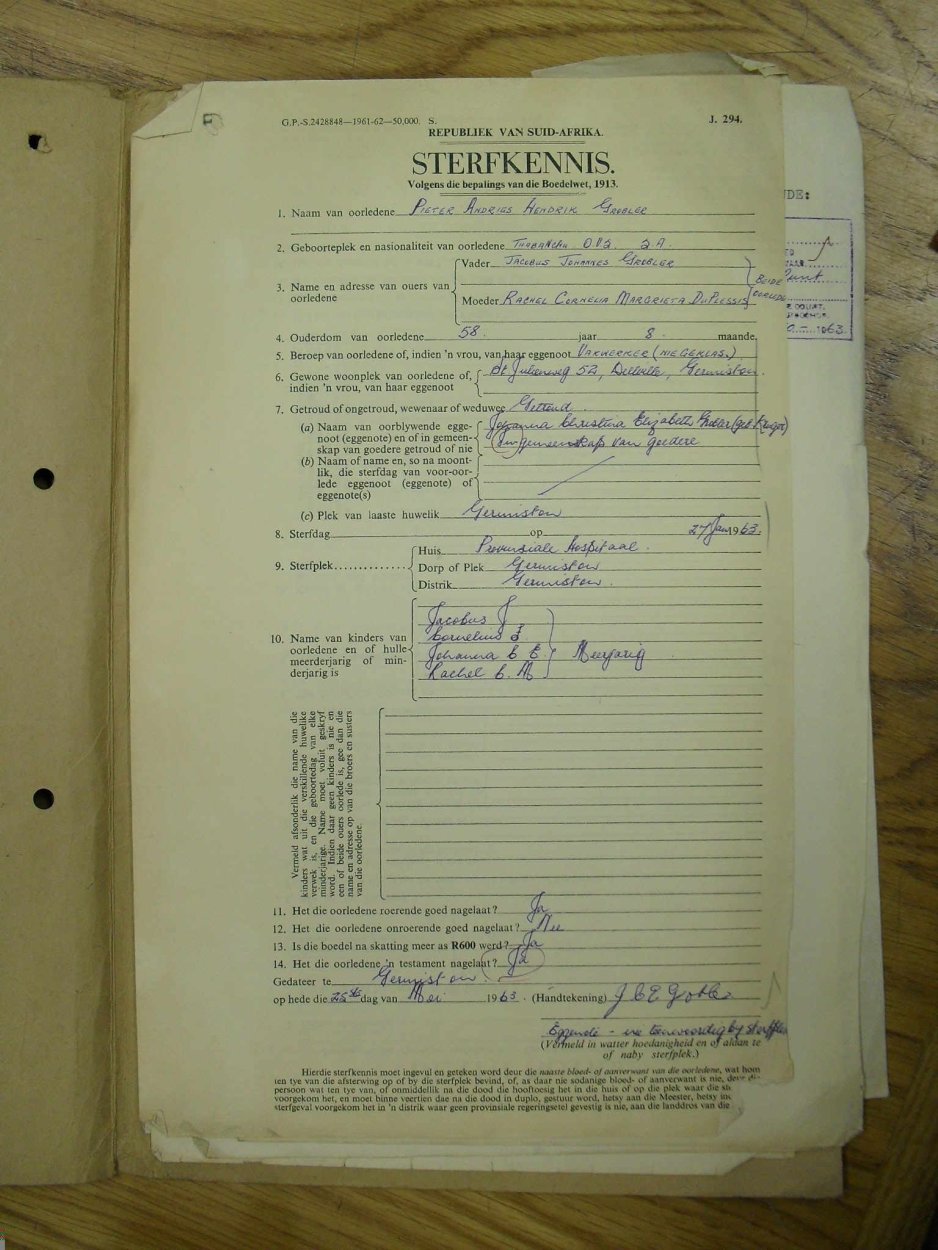 G.P.-S.2428848—1961-62—50,000. S.
J. 294.
REPUBLIEK VAN SUID-AFRIKA.
STERFKENNIS.
Volgens die bepalings van die Boedelwet, 1913.
1. Naam van oorledene PIETER ANDRIES HENDRIK GROBLER
2. Geboorteplek en nasionaliteit van oorledene THABANCHU OVS. Z.A.
3. Name en adresse van ouers van oorledene
Vader JACOBUS JOHANNES GROBLER
Moeder RACHEL CORNELIA MARGRIETA DUPLESSIS
BEIDE
OORLEDE
4. Ouderdom van oorledene 58. jaar 8. maande.
5. Beroep van oorledene of, indien 'n vrou, van haar eggenoot VAKWERKER (NIE GEKLAS.)
6. Gewone woonplek van oorledene of, St Julienweg 52, Delville, Germiston.
indien 'n vrou, van haar eggenoot
7. Getroud of ongetroud, wewenaar of weduwee Getroud
(a) Naam van oorblywende egge- Johanna Christina Elizabeth Grobler (geb. Kruger)
noot (eggenote) en of in gemeen- In gemeenskap van goedere
skap van goedere getroud of nie
(b) Naam of name en, so na moont-
lik, die sterfdag van voor-oor-
lede eggenoot (eggenote) of
eggenote(s)
(c) Plek van laaste huwelik Germiston
8. Sterfdag op 27 Jan 1963.
9. Sterfplek
Huis Provinsiale Hospitaal.
Dorp of Plek Germiston
Distrik Germiston.
10. Name van kinders van
oorledene en of hulle
meerderjarig of min-
derjarig is
Jacobus J
Cornelius J
Johanna C E
Rachel C. M
Meerjarig
Vermeld afsonderlik die name van die
kinders wat uit die verskillende huwelike
verwek is, en die geboortedag van elke
minderjarige. Name moet voluit geskryf
word. Indien daar geen kinders is nie en
een of beide ouers oorlede is, gee dan die
name en adresse op van die broers en susters
van die oorledene.
11. Het die oorledene roerende goed nagelaat? Ja
12. Het die oorledene onroerende goed nagelaat? Nee
13. Is die boedel na skatting meer as R600 werd? Ja
14. Het die oorledene 'n testament nagelaat? Ja
Gedateer te Germiston.
op hede die 25ste dag van Mei 1963. (Handtekening) J C E Grobler
Eggenote - nie teenwoordig by sterfplek
(Vermeld in watter hoedanigheid en of aldan te
of naby sterfplek.)
Hierdie sterfkennis moet ingevul en geteken word deur die naaste bloed- of aanverwant van die oorledene, wat hom
ten tye van die afsterwing op of by die sterfplek bevind, of, as daar nie sodanige bloed- of aanverwant is nie, deur
persoon wat ten tye van, of onmiddellik na die dood die hoofoesig het in die huis of op die plek waar die
voorgekom het, en moet binne veertien dae na die dood in duplo, gestuur word, hetsy aan die Meester, hetsy
sterfgeval voorgekom het in 'n distrik waar geen provinsiale regeringsetel gevestig is nie, aan die landdros van die
DE:
1963.